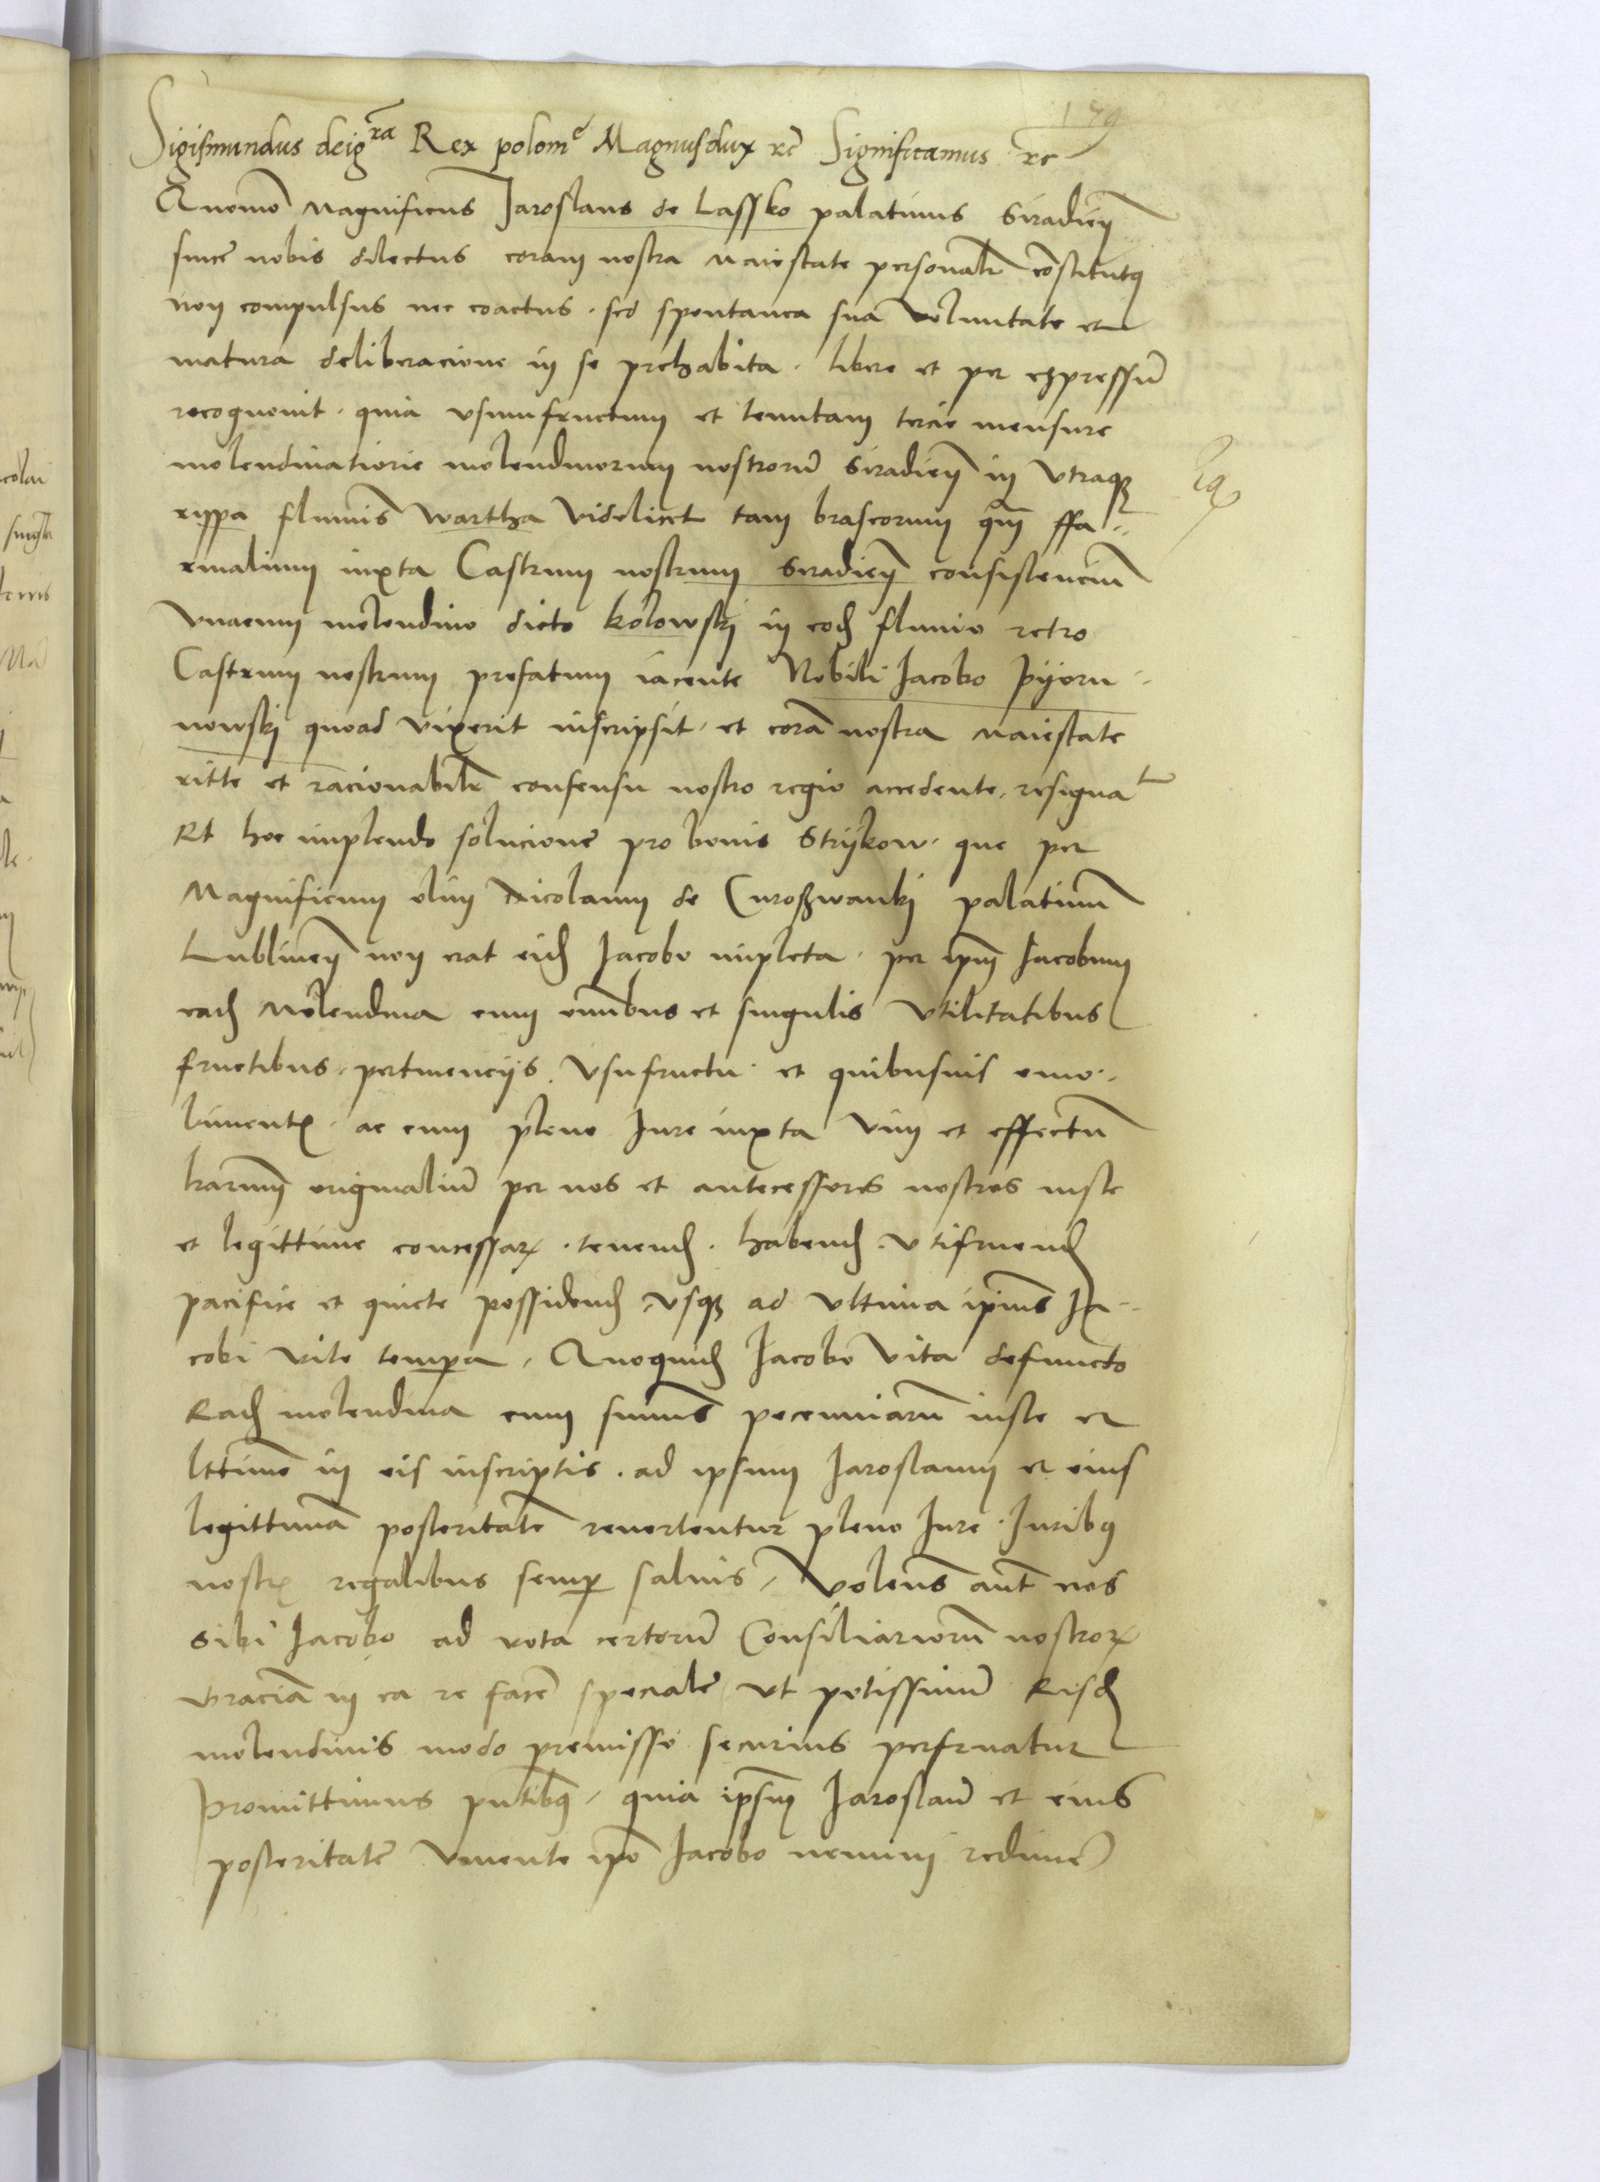 179
Sigismundus deigra Rex polonie Magnusdux rc Significamus rc
Quomo Magnificus Jaroslaus de Lassko palatinus Siradien
sincere nobis dilectus coram nostra Maiestate personalr constitutq
non compulsus nec coactus . sed spontanea sua voluntate et
matura deliberacione in se prehabita . libere et per expressum
recognouit . quia vsumfructum et tenutam tercie mensure
molendinatorie molendinorum nostrorum Siradien in vtraqz
ryppa fluminis Wartha videlicet tam braseorum qm ffa-
rinalium iuxta Castrum nostrum Siradien consistencium
vnacum molendino dicto kolowskj in eod fluuio retro
Castrum nostrum prefatum iacente Nobili Jacobo pyoru-
nowskj quoad vixerit inscripsit . et coram nostra Maiestate
ritte et racionabilr consensu nostro regio accedente . resignat
Et hoc implendo solucionem pro bonis Strykow . que per
Magnificum olim Nicolaum de Curoßwankj palatinum
Lublinen non erat eid Jacobo impleta . per ipm Jacobum
ead Molendina cum omnibus et singulis vtilitatibus
fructibus . pertinencijs . vsufructu . et quibusuis emo-
limentis . ac cum pleno Jure iuxta vim et effectum
lrarum originalium per nos et antecessores nostros iuste
et legittime concessarum . tenend . habend . vtifruend
pacifice et quiete possidend . vsqz ad vltima ipius Ja-
cobi vite tempora . Quoquid Jacobo vita defuncto
Ead molendina cum summis pecuniarum iuste et
lttime in eis inscriptis . ad ipsum Jaroslaum et eius
legittimam posteritatem reuertentur pleno Jure . Juribq
nostris regalibus semper saluis . Volens aut nos
sibi Jacobo ad vota certorum Consiliariorum nostrorum
Graciam in ea re facere specialem vt potissimum Eisd
molendinis modo premisso securius perfruatur
Promittimus pntibq . quia ipsum Jaroslaum et eius
posteritatem viuente ipo Jacobo nemini redimere